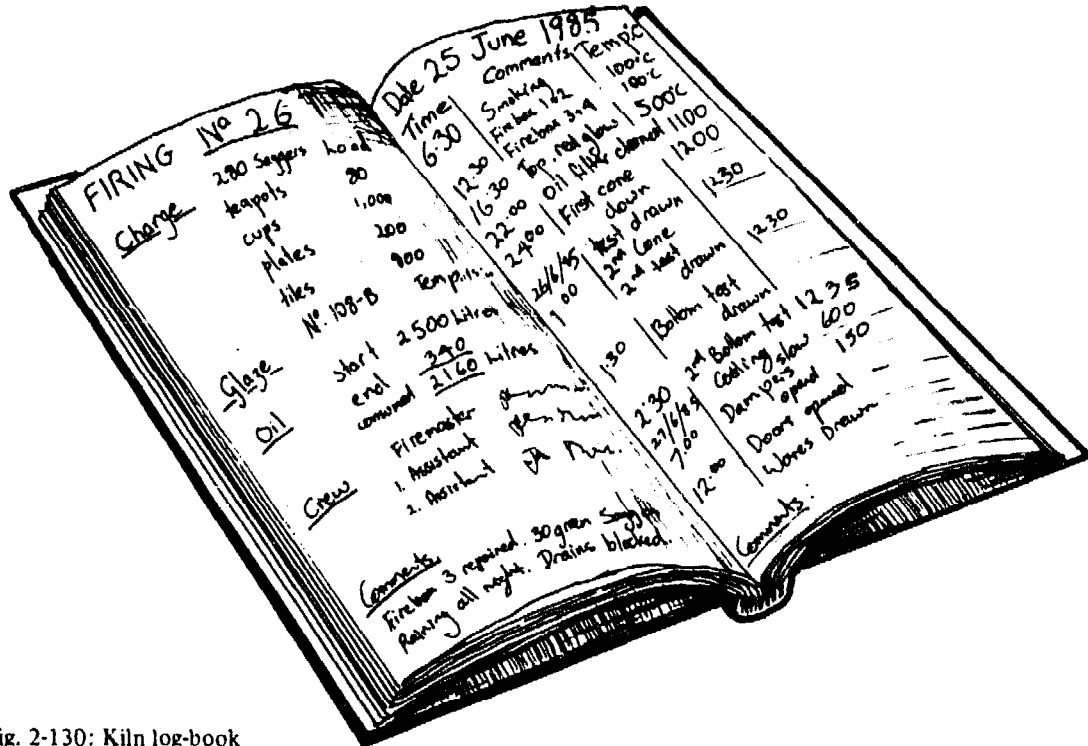 FIRING Nº 26
Charge 280 Saggers Load
teapots 80
cups 1,000
plates 200
tiles 900
Glaze Nº 108-B
Oil start 2500 Litres
end 340
consumed 2160 Litres
Crew Firemaster
1. Assistant
2. Assistant
Comments
Firebox 3 repaired. 30 green Saggers
Raining all night. Drains blocked.
Date 25 June 1985
Time Comments Temp.C
6:30 Smoking
Firebox 1&2 100°C
Firebox 3,4 100°C
12:30 Top. red glow 500°C
16:30 Oil filter cleaned 1100
22:00 First cone down 1200
2400 test drawn
26/6/85 2nd Cone 1230
00 2nd test drawn
1 Bottom test drawn 1230
1:30 2nd Bottom test 1235
2:30 Cooling slow 600
27/6/85 Dampers opend 150
7.00 Doors opened
12.00 Wares Drawn
Comments:
Fig. 2-130: Kiln log-book